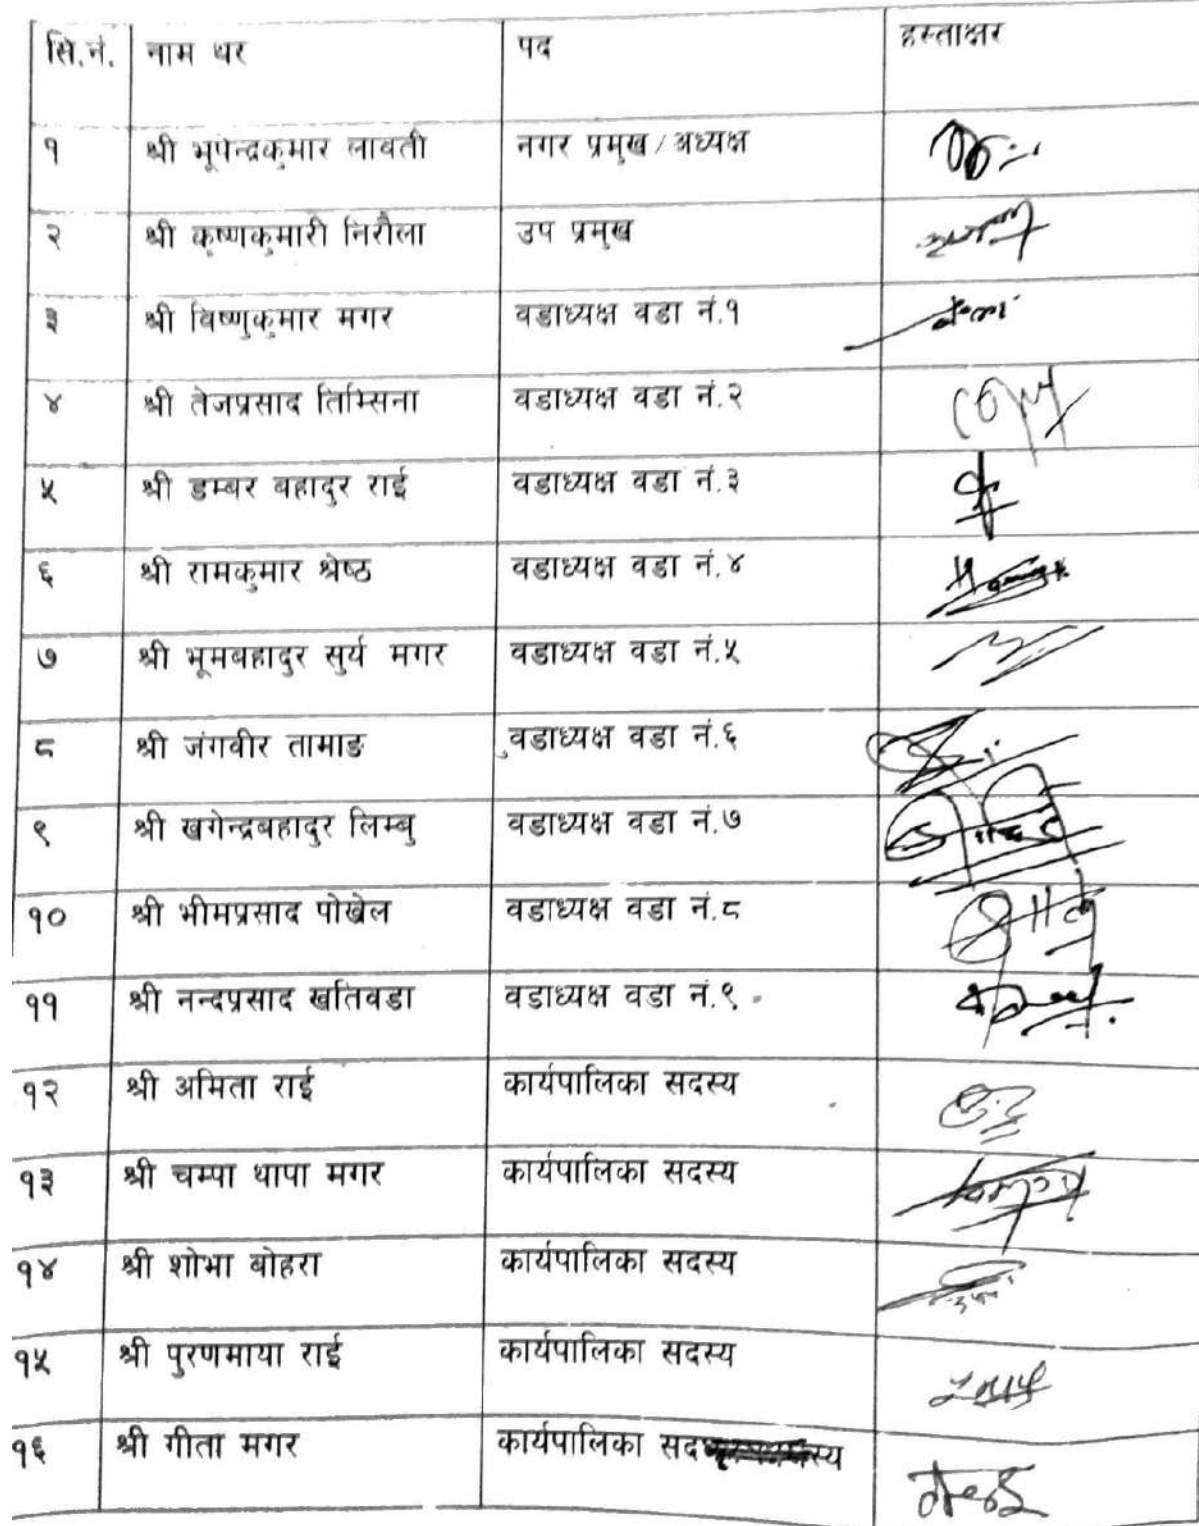 सि.नं. नाम थर पद हस्ताक्षर
१ श्री भूपेन्द्रकुमार लावती नगर प्रमुख/अध्यक्ष
२ श्री कृष्णकुमारी निरौला उप प्रमुख
३ श्री विष्णुकुमार मगर वडाध्यक्ष वडा नं.१
४ श्री तेजप्रसाद तिम्सिना वडाध्यक्ष वडा नं.२
५ श्री डम्बर बहादुर राई वडाध्यक्ष वडा नं.३
६ श्री रामकुमार श्रेष्ठ वडाध्यक्ष वडा नं.४
७ श्री भूमबहादुर सुर्य मगर वडाध्यक्ष वडा नं.५
८ श्री जंगवीर तामाङ वडाध्यक्ष वडा नं.६
९ श्री खगेन्द्रबहादुर लिम्बु वडाध्यक्ष वडा नं.७
१० श्री भीमप्रसाद पोखेल वडाध्यक्ष वडा नं.८
११ श्री नन्दप्रसाद खतिवडा वडाध्यक्ष वडा नं.९
१२ श्री अमिता राई कार्यपालिका सदस्य
१३ श्री चम्पा थापा मगर कार्यपालिका सदस्य
१४ श्री शोभा बोहरा कार्यपालिका सदस्य
१५ श्री पुरणमाया राई कार्यपालिका सदस्य
१६ श्री गीता मगर कार्यपालिका